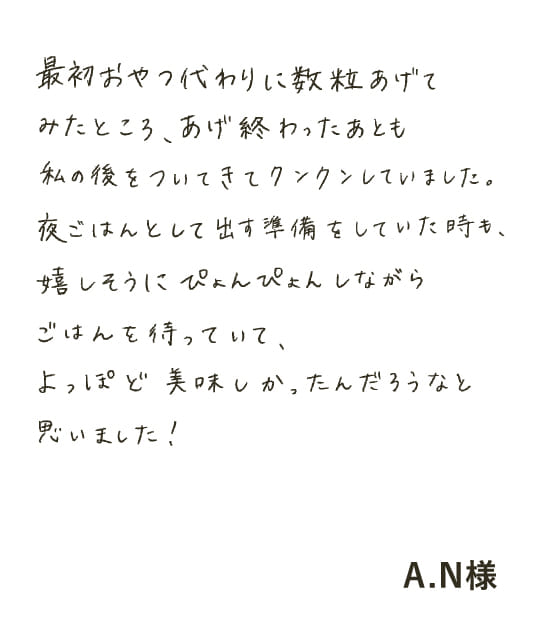 最初おやつ代わりに数粒あげて
みたところ、あげ終わったあとも
私の後をついてきてクンクンしていました。
夜ごはんとして出す準備をしていた時も、
嬉しそうにぴょんぴょんしながら
ごはんを待っていて、
よっぽど美味しかったんだろうなと
思いました!
A.N様